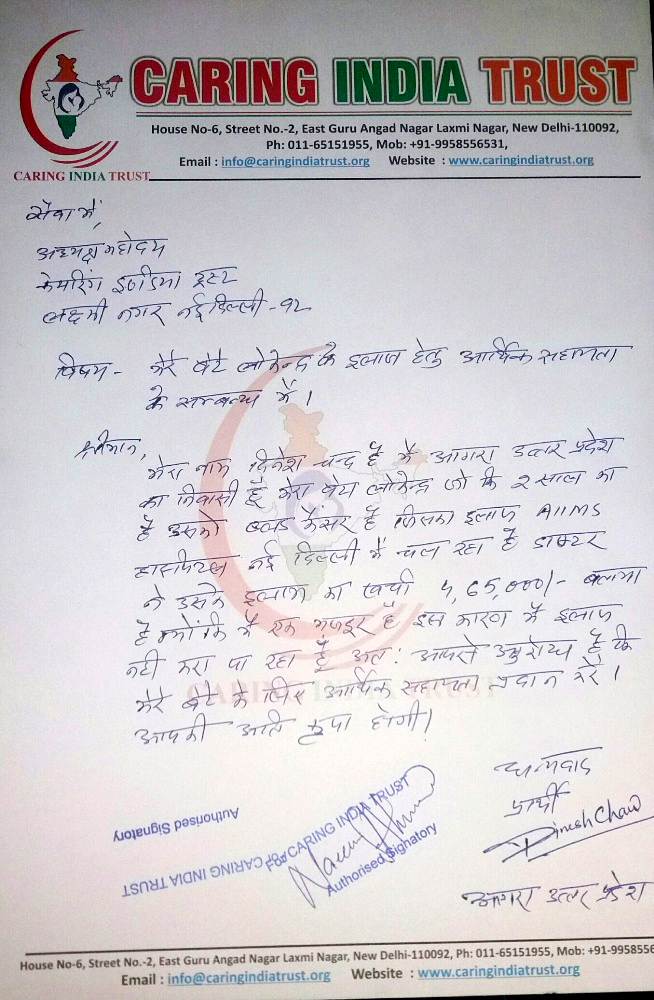 CARING INDIA TRUST
House No-6, Street No.-2, East Guru Angad Nagar Laxmi Nagar, New Delhi-110092,
Ph: 011-65151955, Mob: +91-9958556531,
Email : info@caringindiatrust.org Website : www.caringindiatrust.org
CARING INDIA TRUST
सेवा में,
अध्यक्ष महोदय
केयरिंग इण्डिया ट्रस्ट
लक्ष्मी नगर नई दिल्ली -92
विषय - मेरे बेटे लोकेन्द्र के इलाज हेतु आर्थिक सहायता
के सम्बन्ध में।
श्रीमान,
मेरा नाम दिनेश चन्द है मैं आगरा उत्तर प्रदेश
का निवासी हूँ मेरा बेटा लोकेन्द्र जो कि २ साल का
है उसको ब्लड कैंसर है जिसका इलाज AIIMS
हास्पिटल नई दिल्ली में चल रहा है डाक्टर
ने उसके इलाज का खर्चा 4,65,000/- बताया
है क्योंकि मैं एक मजदूर हूँ इस कारण मैं इलाज
नही करा पा रहा हूँ अतः आपसे अनुरोध है कि
मेरे बेटे के लिए आर्थिक सहायता प्रदान करें।
आपकी अति कृपा होगी।
CARING INDIA TRUST
धन्यवाद
प्रार्थी
Dinesh Chand
आगरा उत्तर प्रदेश
Authorised Signatory
CARING INDIA TRUST
For CARING INDIA TRUST
Authorised Signatory
House No-6, Street No.-2, East Guru Angad Nagar Laxmi Nagar, New Delhi-110092, Ph: 011-65151955, Mob: +91-9958556
Email : info@caringindiatrust.org Website : www.caringindiatrust.org